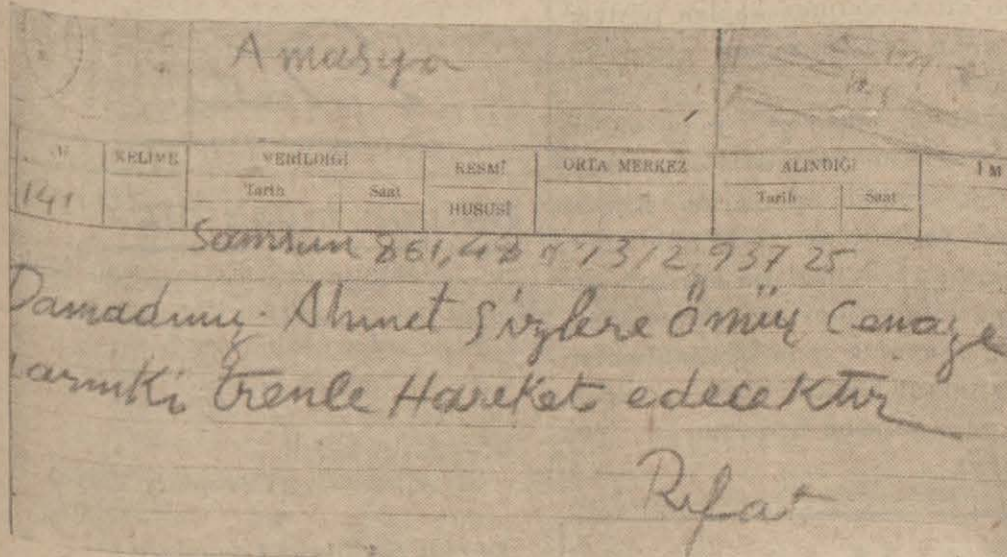 Amasya
KELİME VERİLDİĞİ RESMİ ORTA MERKEZ ALINDIĞI İM
Tarih Saat HUSUSİ Tarih Saat
141
Samsun 937 25
Damadınız Ahmet Sizlere Ömür Cenaze
yarınki trenle Hareket edecektir
Rıfat